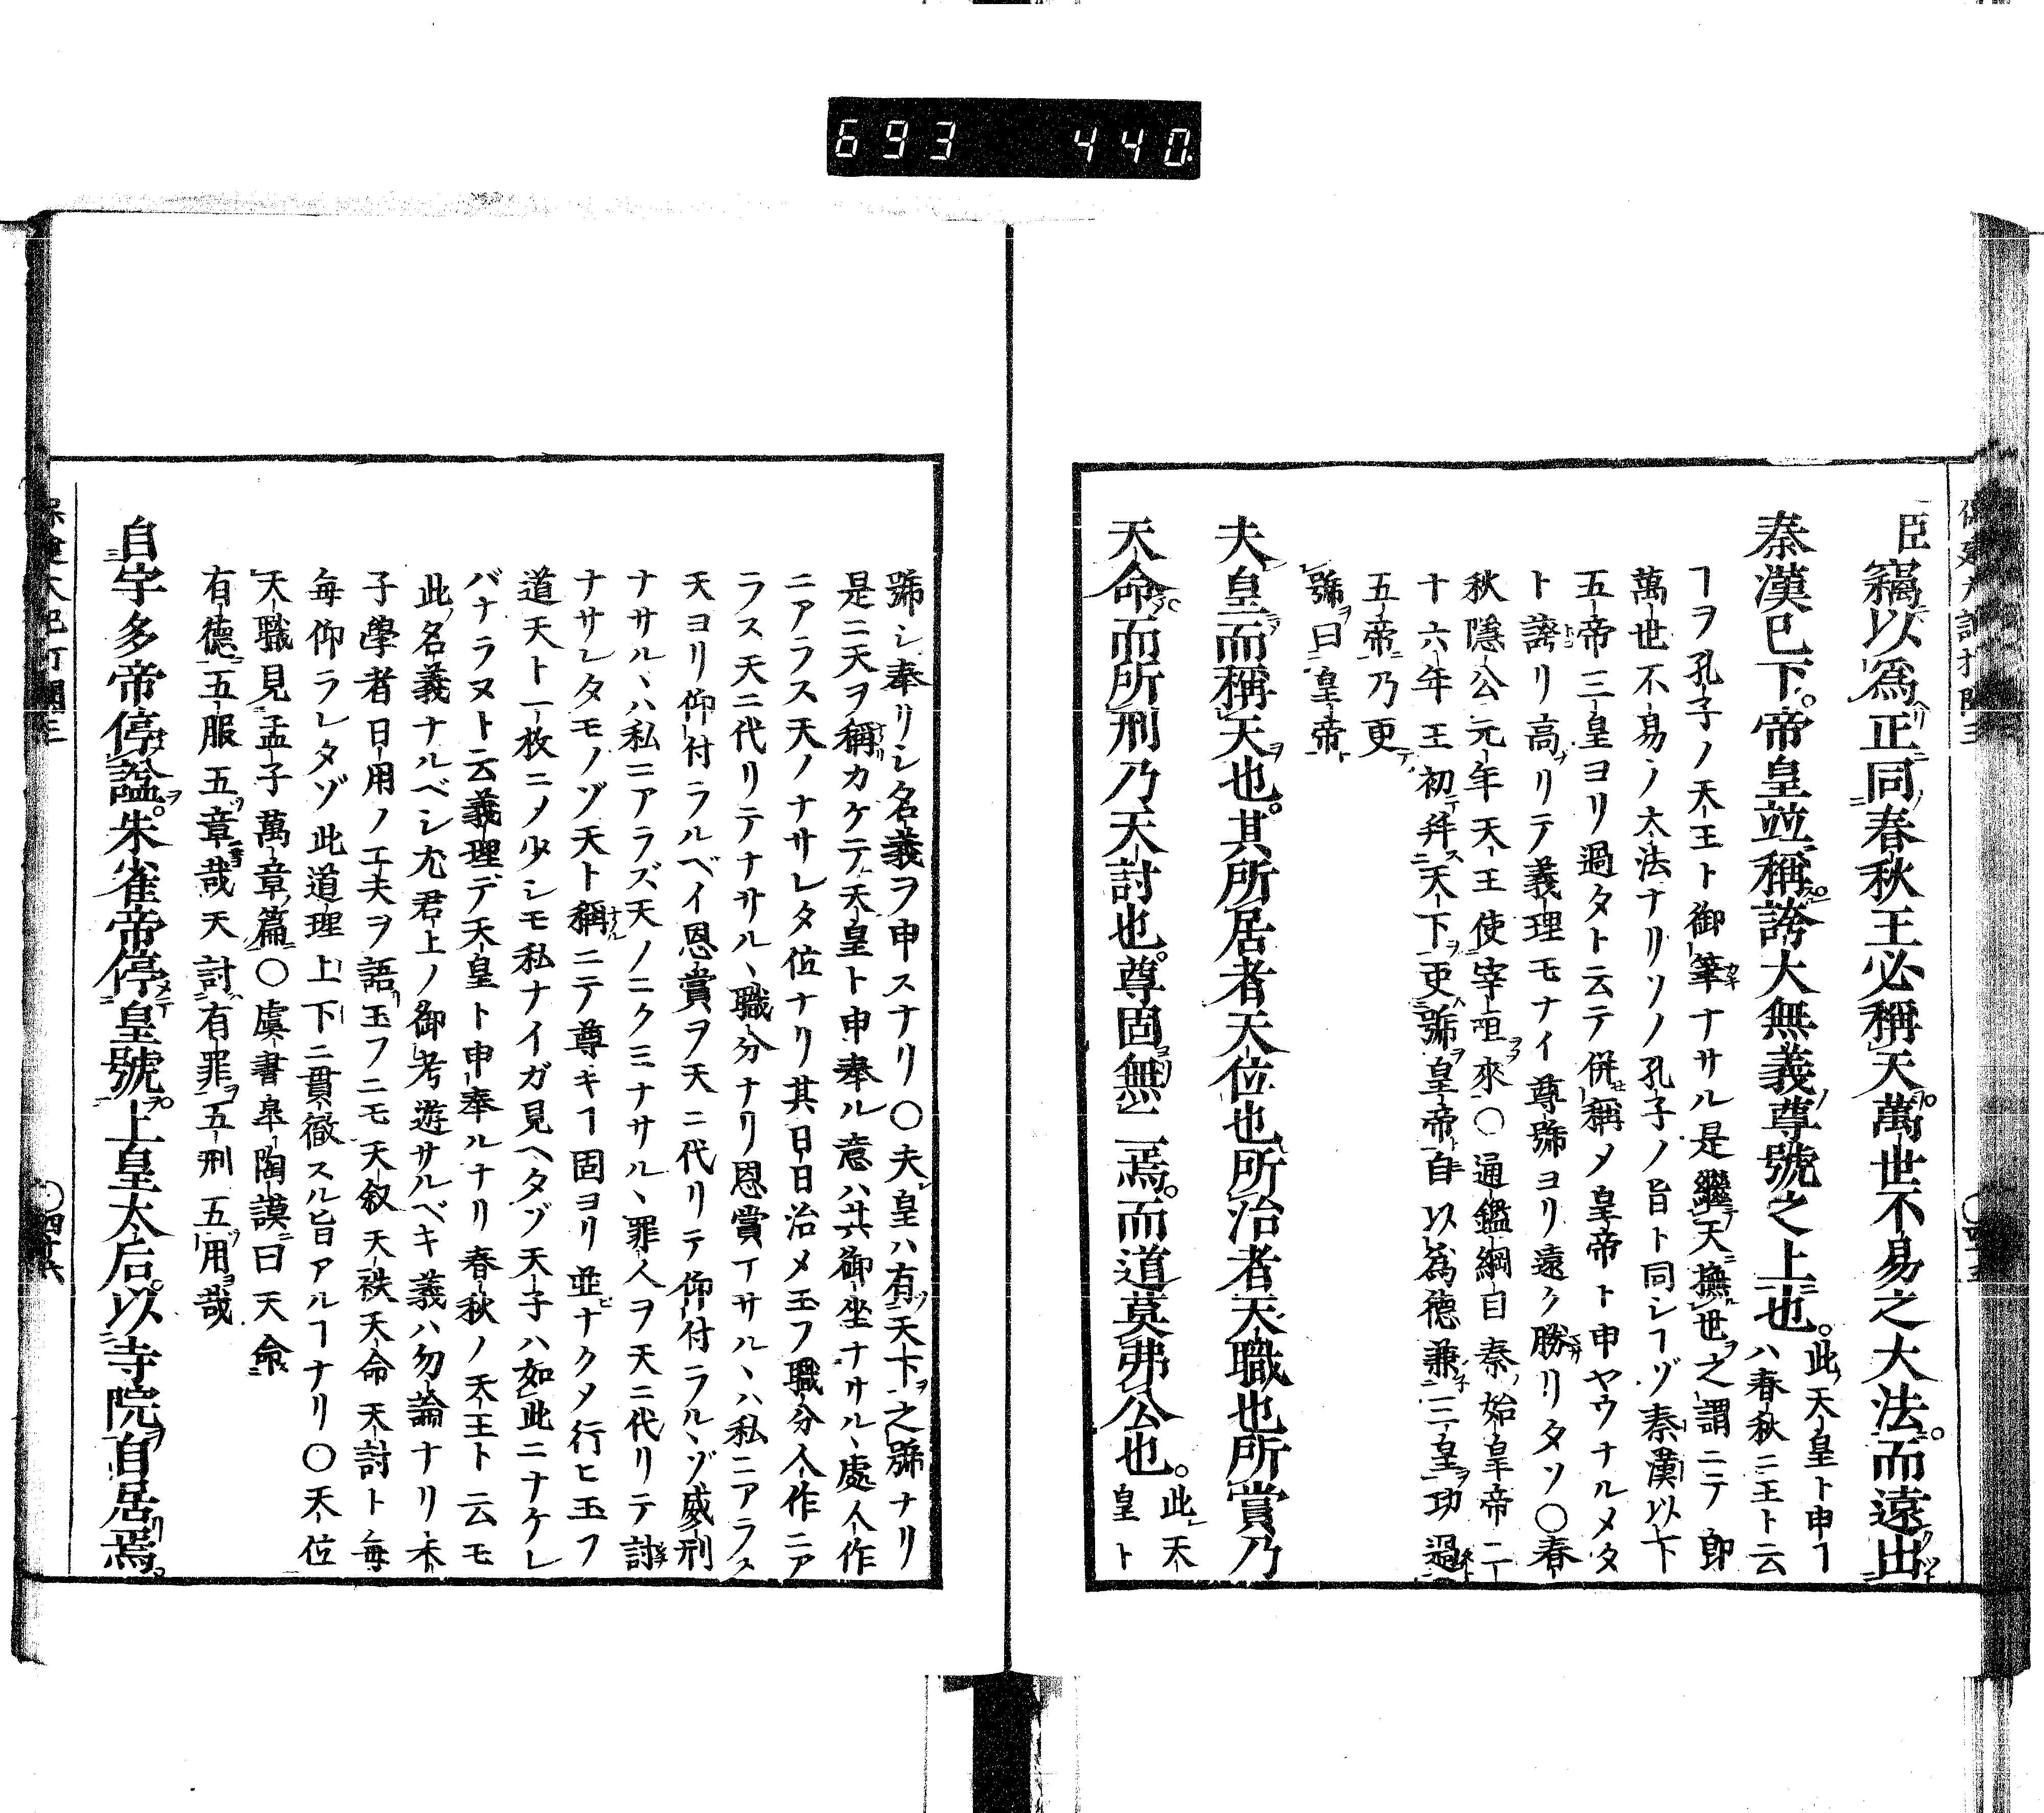 693 440
臣竊以為正同春秋王必稱天萬世不易之大法。而遠出
秦漢已下。帝皇竝稱誇大無義尊號之上也。此天皇ト申ヿ
ハ春秋ニ王ト云
ヿヲ孔子ノ天王ト御筆ナサル是繼天撫世之謂ニテ即
萬世不易ノ大法ナリソノ孔子ノ旨ト同シヿゾ秦漢以下
五帝三皇ヨリ過タト云テ併稱メ皇帝ト申ヤウナルメタ
ト誇リ高リテ義理モナイ尊號ヨリ遠ク勝リタソ〇春
秋隱公元年天王使宰咺來〇通鑑綱目秦始皇帝二
十六年王初并天下更號皇帝自以為德兼三皇功過
五帝乃更
號曰皇帝
夫皇而稱天也。其所居者天位也所治者天職也所賞乃
天命而所刑乃天討也。尊固無二焉。而道莫弗公也。此天
皇ト
號シ奉リシ名義ヲ申スナリ〇夫皇ハ有天下之號ナリ
是ニ天ヲ稱カケテ天皇ト申奉ル意ハ其御坐ナサル丶處人作
ニアラス天ノナサレタ位ナリ其日日治メ玉フ職分人作ニア
ラス天ニ代リテナサル丶職分ナリ恩賞ナサル丶ハ私ニアラス
天ヨリ仰付ラルベイ恩賞ヲ天ニ代リテ仰付ラル丶ゾ威刑
ナサル丶ハ私ニアラズ天ノニクミナサル丶罪人ヲ天ニ代リテ討
ナサレタモノゾ天ト稱ニテ尊キヿ固ヨリ並ナクメ行ヒ玉フ
道天ト一枚ニメ少シモ私ナイガ見ヘタゾ天子ハ如此ニナケレ
バナラヌト云義理デ天皇ト申奉ルナリ春秋ノ天王ト云モ
此名義ナルベシ尤君上ノ御考遊サルベキ義ハ勿論ナリ朱
子學者日用ノ工夫ヲ語玉フニモ天敘天秩天命天討ト毎
毎仰ラレタゾ此道理上下ニ貫徹スル旨アルヿナリ〇天位
天職見孟子萬章篇〇虞書皐陶謨曰天命
有德五服五章哉天討有罪五刑五用哉
自宇多帝停諡。朱雀帝停皇號。上皇太后。以寺院自居焉。
〇四十六